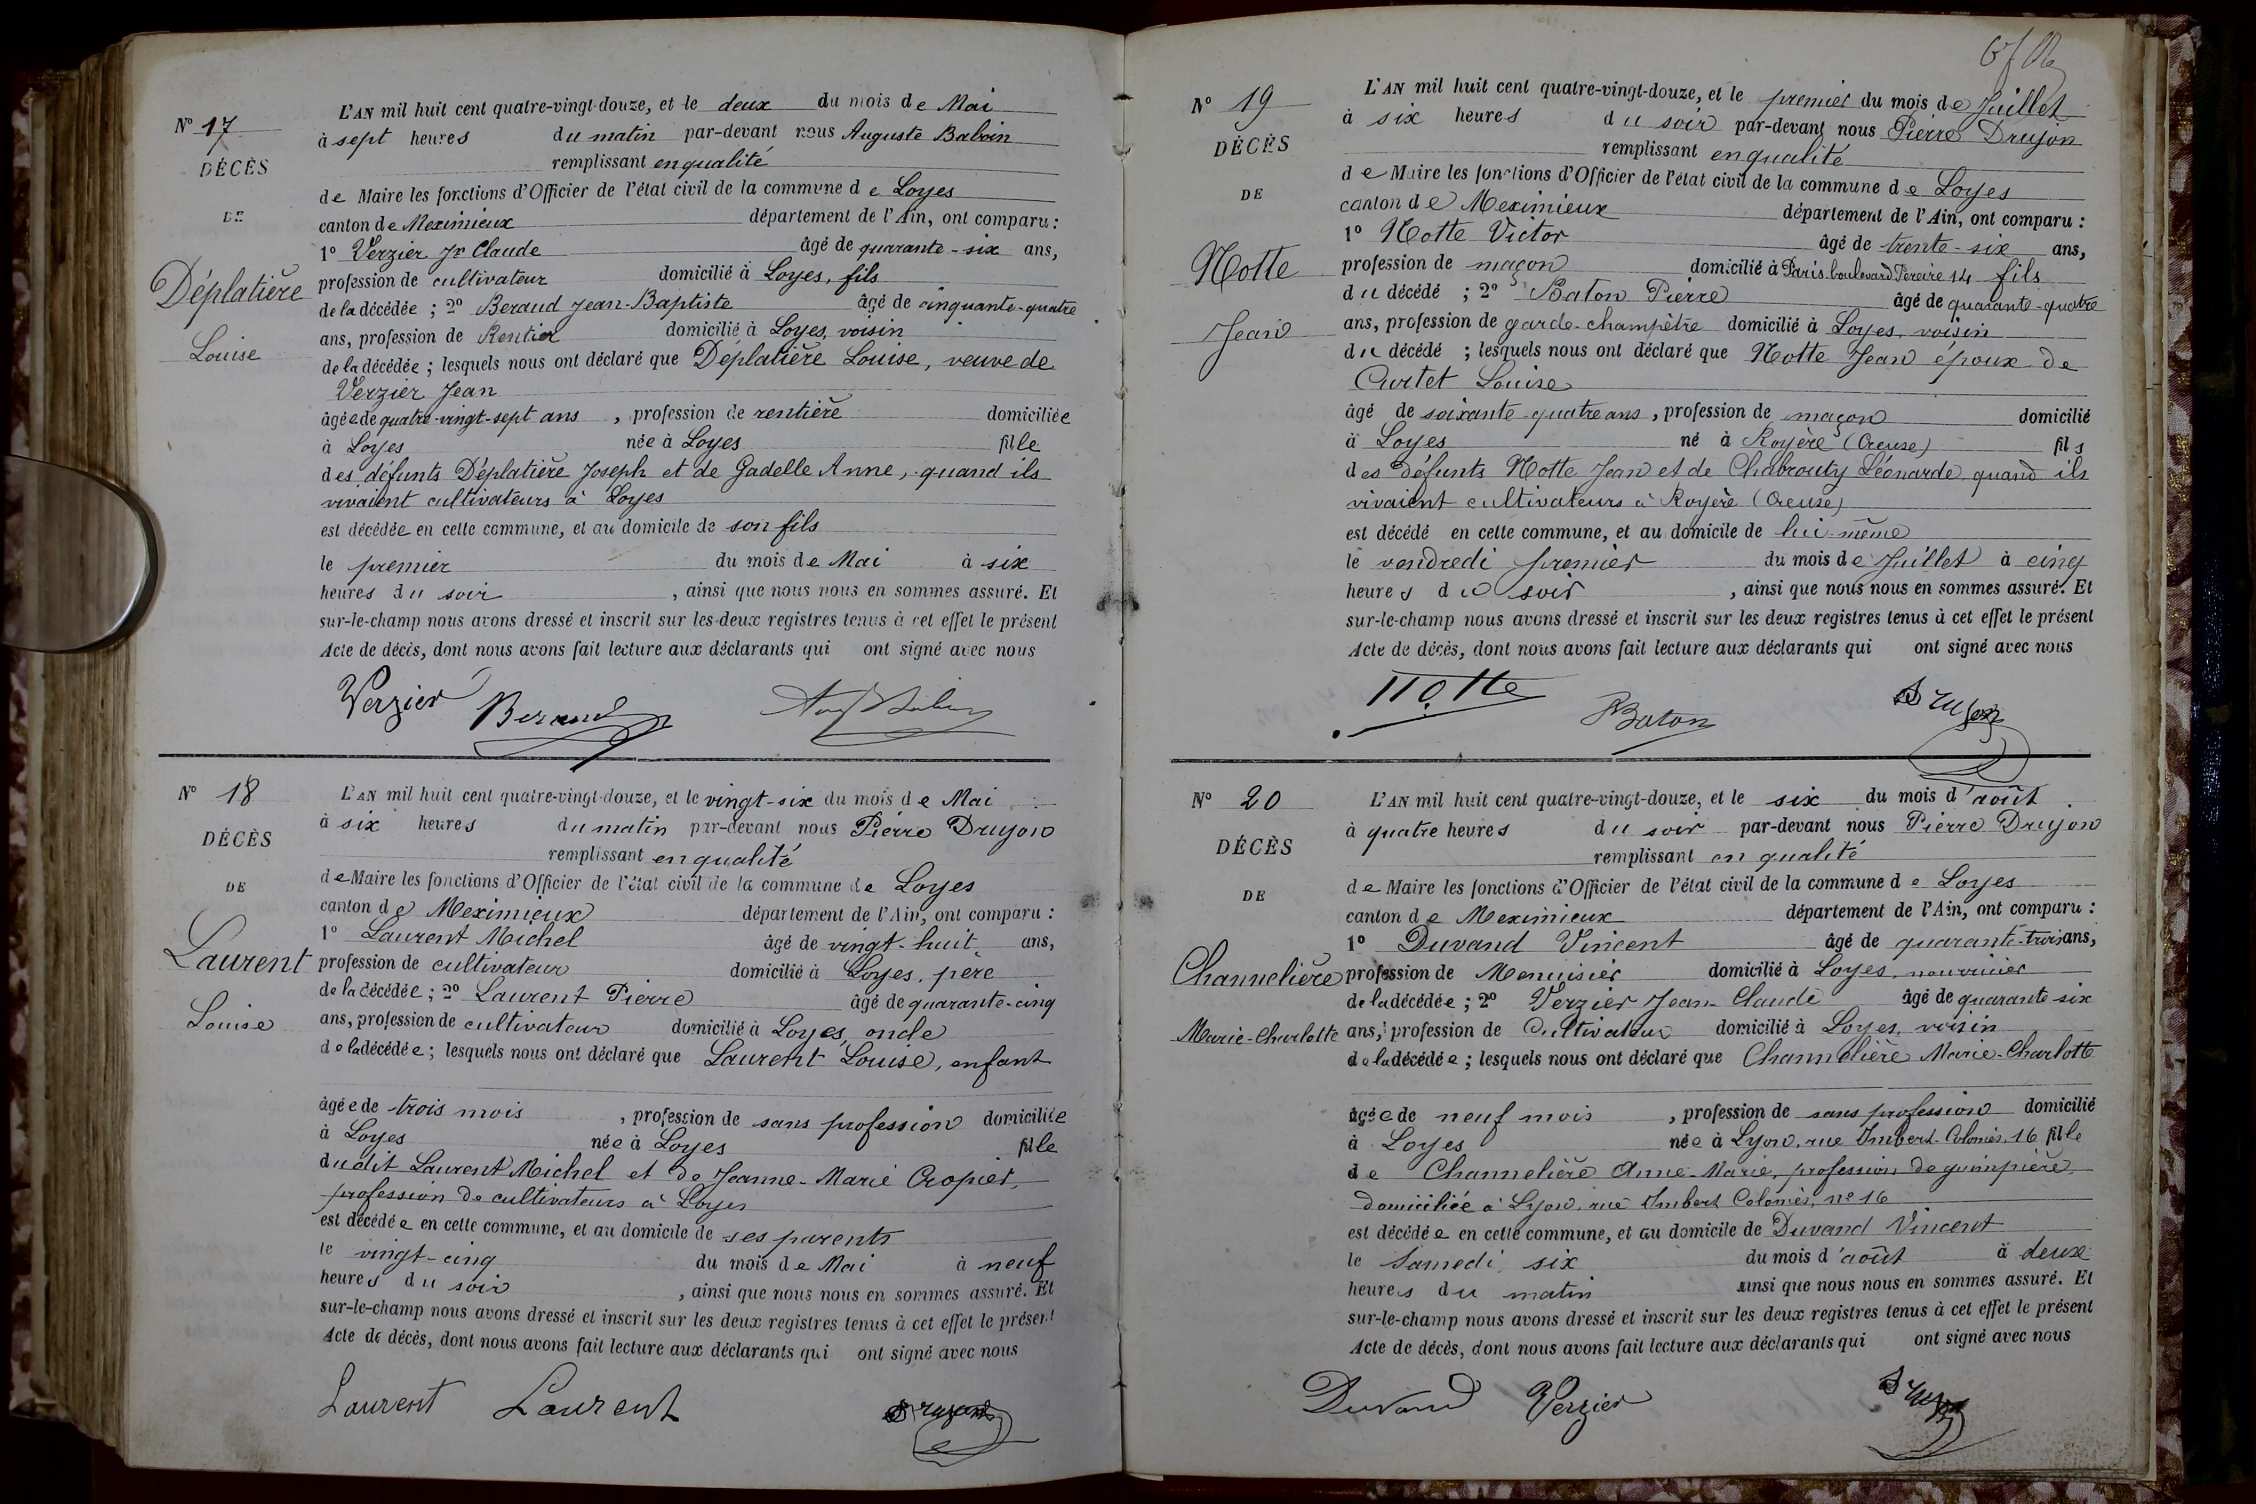 Nº 17
DÉCÈS
DE
Déplatière
Louise
L'AN mil huit cent quatre-vingt-douze, et le deux du mois de Mai
à sept heures du matin par-devant nous Auguste Balvin
remplissant en qualité
de Maire les fonctions d'Officier de l'état civil de la commune de Loyes
canton de Meximieux département de l'Ain, ont comparu :
1º Verzier Jn Claude âgé de quarante-six ans,
profession de cultivateur domicilié à Loyes, fils
de la décédée ; 2º Beraud Jean-Baptiste âgé de cinquante-quatre
ans, profession de Rentier domicilié à Loyes, voisin
de la décédée ; lesquels nous ont déclaré que Déplatière Louise, veuve de
Verzier Jean
âgée de quatre-vingt-sept ans , profession de rentière domiciliée
à Loyes née à Loyes fille
des défunts Déplatière Joseph et de Gadelle Anne, quand ils
vivaient cultivateurs à Loyes
est décédée en cette commune, et au domicile de son fils
le premier du mois de Mai à six
heures du soir , ainsi que nous nous en sommes assuré. Et
sur-le-champ nous avons dressé et inscrit sur les deux registres tenus à cet effet le présent
Acte de décès, dont nous avons fait lecture aux déclarants qui ont signé avec nous
Verzier Beraud
Nº 18
DÉCÈS
DE
Laurent
Louise
L'AN mil huit cent quatre-vingt-douze, et le vingt-six du mois de Mai
à six heures du matin par-devant nous Pierre Drujon
remplissant en qualité
de Maire les fonctions d'Officier de l'état civil de la commune de Loyes
canton de Meximieux département de l'Ain, ont comparu :
1º Laurent Michel âgé de vingt-huit ans,
profession de cultivateur domicilié à Loyes, père
de la décédée ; 2º Laurent Pierre âgé de quarante-cinq
ans, profession de cultivateur domicilié à Loyes, oncle
de la décédée ; lesquels nous ont déclaré que Laurent Louise, enfant
âgée de trois mois , profession de sans profession domiciliée
à Loyes née à Loyes fille
dudit Laurent Michel et de Jeanne-Marie Cropier,
profession de cultivateurs à Loyes
est décédée en cette commune, et au domicile de ses parents
le vingt-cinq du mois de Mai à neuf
heures du soir , ainsi que nous nous en sommes assuré. Et
sur-le-champ nous avons dressé et inscrit sur les deux registres tenus à cet effet le présent
Acte de décès, dont nous avons fait lecture aux déclarants qui ont signé avec nous
Laurent Laurent Drujon
Nº 19
DÉCÈS
DE
Notte
Jean
L'AN mil huit cent quatre-vingt-douze, et le premier du mois de Juillet
à six heures du soir par-devant nous Pierre Drujon
remplissant en qualité
de Maire les fonctions d'Officier de l'état civil de la commune de Loyes
canton de Meximieux département de l'Ain, ont comparu :
1º Notte Victor âgé de trente-six ans,
profession de maçon domicilié à Paris boulevard Péreire 14 fils
du décédé ; 2º Baton Pierre âgé de quarante-quatre
ans, profession de garde-champêtre domicilié à Loyes, voisin
du décédé ; lesquels nous ont déclaré que Notte Jean époux de
Curtet Louise
âgé de soixante-quatre ans, profession de maçon domicilié
à Loyes né à Royère (Creuse) fils
des défunts Notte Jean et de Chabrouty Léonarde, quand ils
vivaient cultivateurs à Royère (Creuse)
est décédé en cette commune, et au domicile de lui-même
le vendredi premier du mois de Juillet à cinq
heures du soir , ainsi que nous nous en sommes assuré. Et
sur-le-champ nous avons dressé et inscrit sur les deux registres tenus à cet effet le présent
Acte de décès, dont nous avons fait lecture aux déclarants qui ont signé avec nous
Notte Baton Drujon
Nº 20
DÉCÈS
DE
Channelière
Marie-Charlotte
L'AN mil huit cent quatre-vingt-douze, et le six du mois d'août
à quatre heures du soir par-devant nous Pierre Drujon
remplissant en qualité
de Maire les fonctions d'Officier de l'état civil de la commune de Loyes
canton de Meximieux département de l'Ain, ont comparu :
1º Duvand Vincent âgé de quarante-trois ans,
profession de Menuisier domicilié à Loyes, nourricier
de la décédée ; 2º Verzier Jean-Claude âgé de quarante-six
ans, profession de Cultivateur domicilié à Loyes, voisin
de la décédée ; lesquels nous ont déclaré que Channelière Marie-Charlotte
âgée de neuf mois , profession de sans profession domicilié
à Loyes née à Lyon, rue Imbert-Colomès, 16 fille
de Channelière Anne-Marie, profession de guimpière,
domiciliée à Lyon, rue Imbert Colomès, nº 16
est décédée en cette commune, et au domicile de Duvand Vincent
le Samedi six du mois d'août à deux
heures du matin ainsi que nous nous en sommes assuré. Et
sur-le-champ nous avons dressé et inscrit sur les deux registres tenus à cet effet le présent
Acte de décès, dont nous avons fait lecture aux déclarants qui ont signé avec nous
Duvand Verzier Drujon